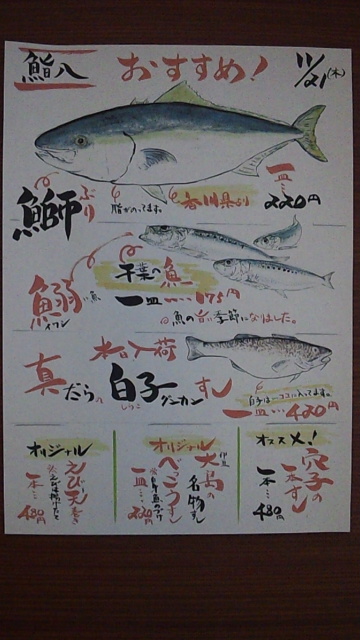 鮨八 おすすめ! 11/21(木)
鰤 ぶり
脂がのってます。
香川県より
一皿… 220円
鰯 イワシ
千葉の魚
一皿……175円
魚の旨い季節になりました。
本日入荷
真だらの白子グンカンすし
しらこ
白子はココに入ってます。
一皿… 480円
オリジナル
えび天巻き
一本… 480円
オリジナル
伊豆大島の名物すし
べっこうすし
一皿… 220円
オススメ!
穴子の一本すし
一本… 480円